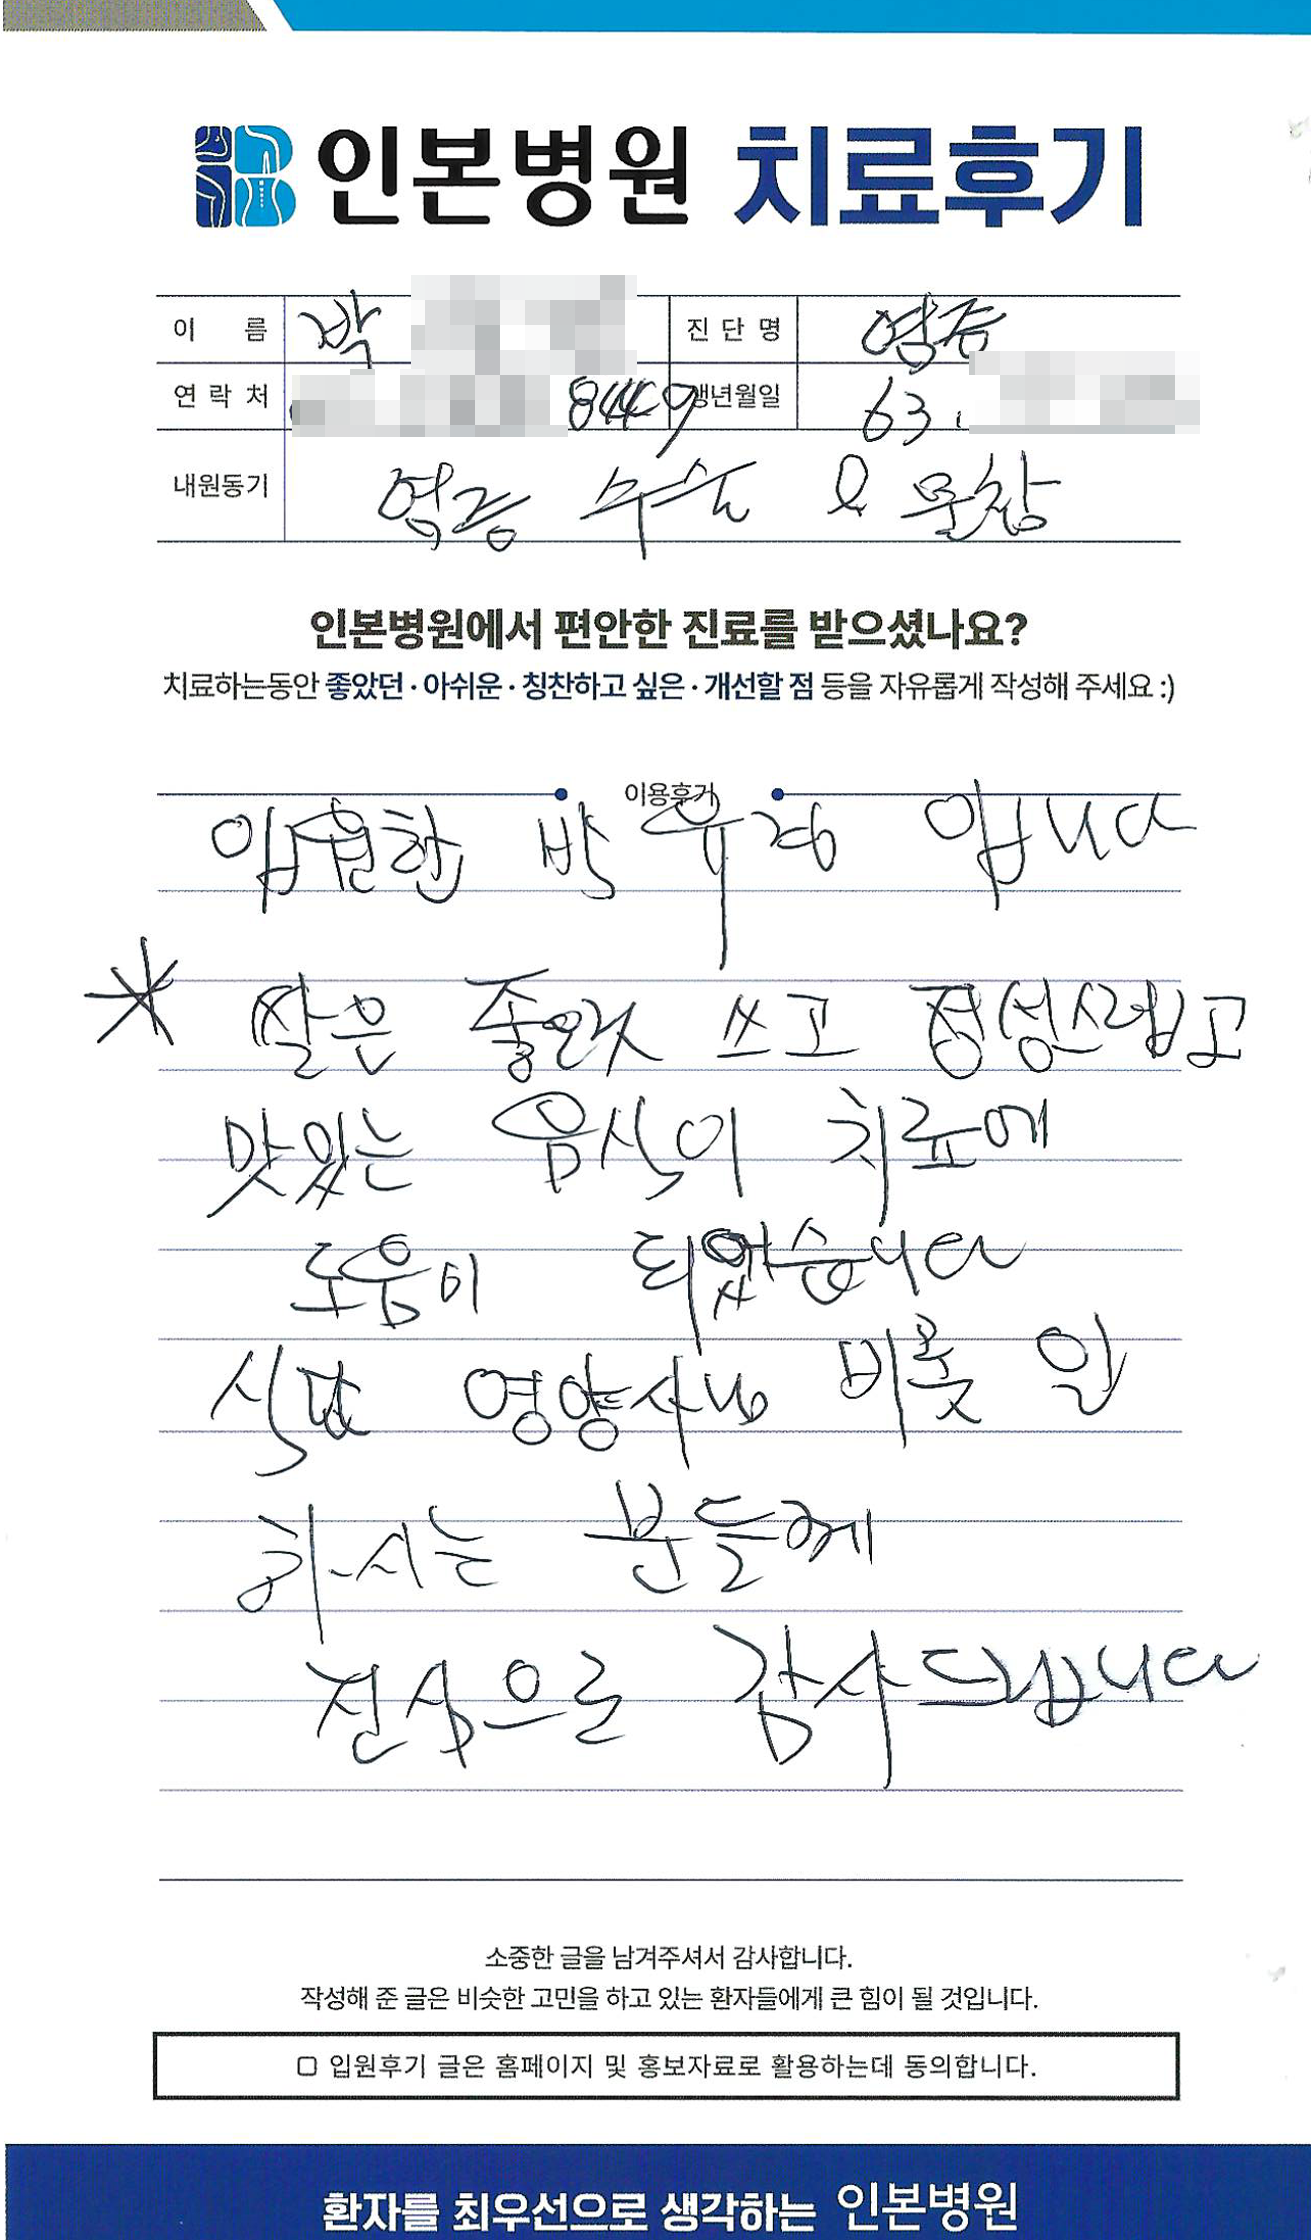 인본병원 치료후기
이 름 박 진 단 명 염증
연 락 처 8449 생년월일 63.
내원동기 염증 수술 및 문창
인본병원에서 편안한 진료를 받으셨나요?
치료하는동안 좋았던 · 아쉬운 · 칭찬하고 싶은 · 개선할 점 등을 자유롭게 작성해 주세요 :)
이용후기
입원한 박 입니다
* 쌀은 쓰고 정성스럽고
맛있는 음식이 치료에
도움이 되었습니다
식당 영양사님 비롯 일
하시는 분들께
진심으로 감사드립니다
소중한 글을 남겨주셔서 감사합니다.
작성해 준 글은 비슷한 고민을 하고 있는 환자들에게 큰 힘이 될 것입니다.
□ 입원후기 글은 홈페이지 및 홍보자료로 활용하는데 동의합니다.
환자를 최우선으로 생각하는 인본병원